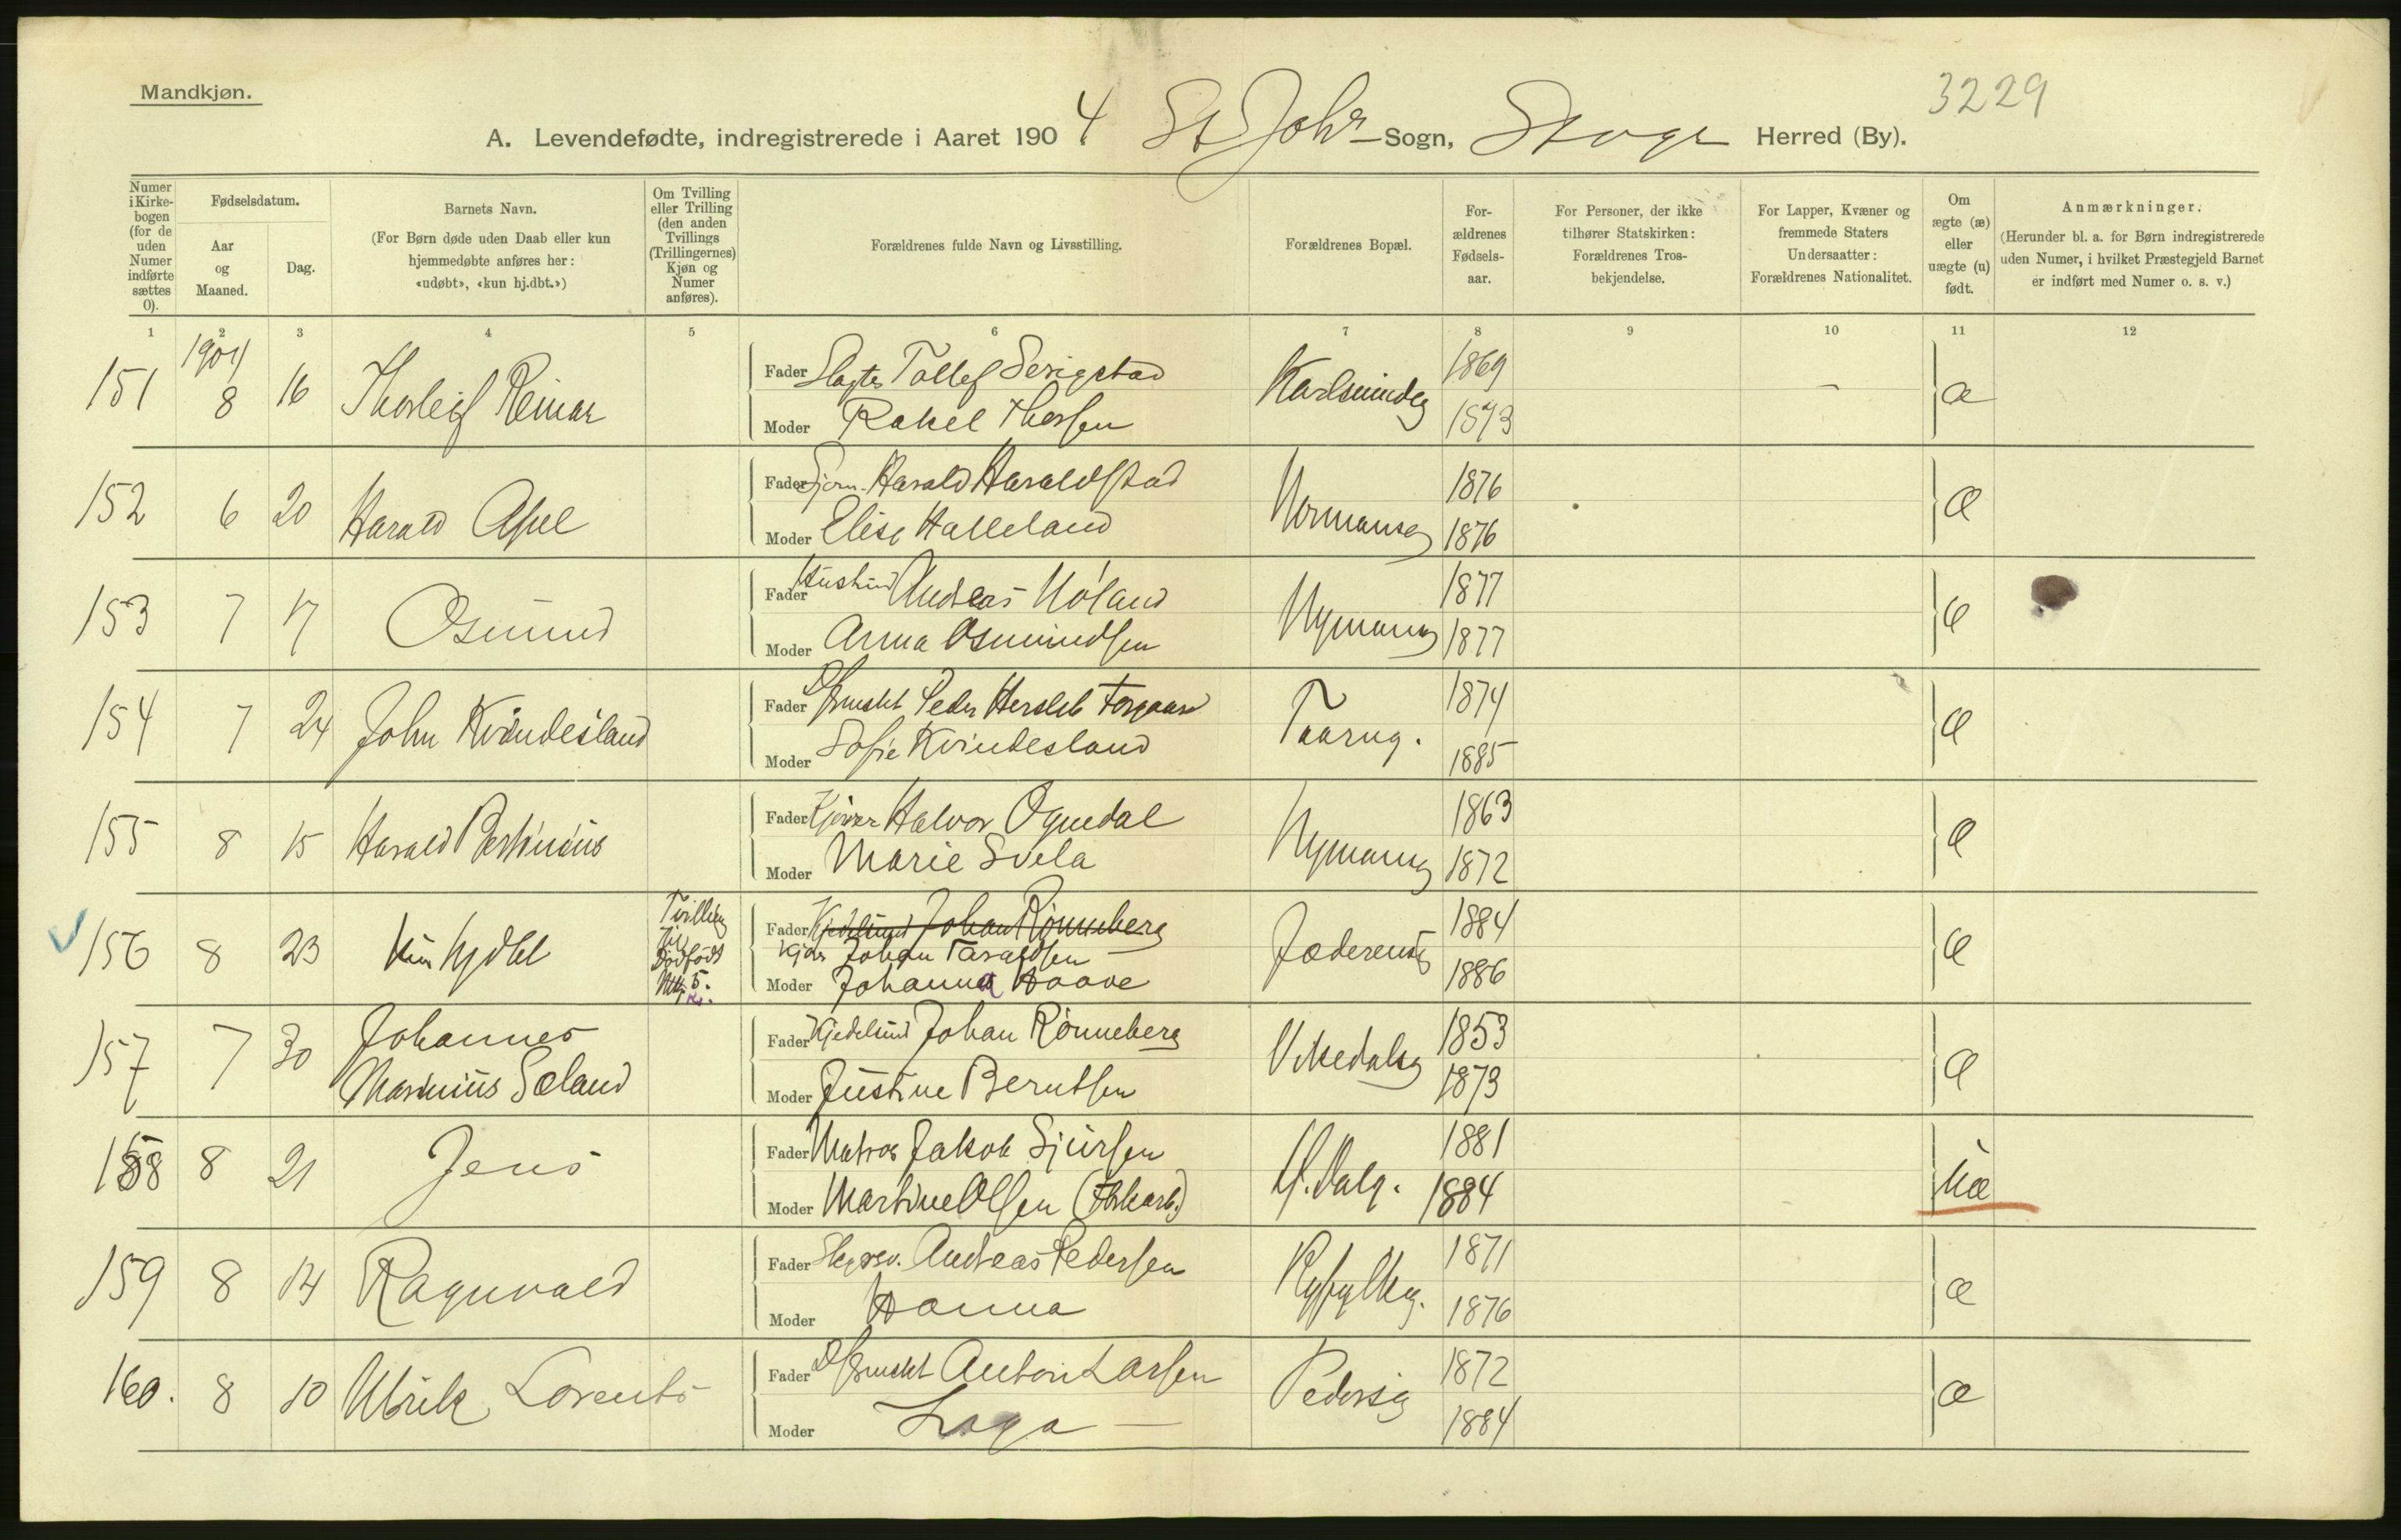 Mandkjøn.
3229
A. Levendefødte, indregistrerede i Aaret 1904 St Joh's Sogn, Stvgr Herred (By).
Numer i Kirke-bogen (for de uden Numer indførte sættes 0).
Fødselsdatum.
Aar og Maaned.
Dag.
Barnets Navn.
(For Børn døde uden Daab eller kun hjemmedøbte anføres her: «udøbt», «kun hj.dbt.»)
Om Tvilling eller Trilling (den anden Tvillings (Trillingernes) Kjøn og Numer anføres).
Forældrenes fulde Navn og Livsstilling.
Forældrenes Bopæl.
For-ældrenes Fødsels-aar.
For Personer, der ikke tilhører Statskirken: Forældrenes Tros-bekjendelse.
For Lapper, Kvæner og fremmede Staters Undersaatter: Forældrenes Nationalitet.
Om ægte (æ) eller uægte (u) født.
Anmærkninger.
(Herunder bl. a. for Børn indregistrerede uden Numer, i hvilket Præstegjeld Barnet er indført med Numer o. s. v.)
1 2 3 4 5 6 7 8 9 10 11 12
1904
151 8 16 Thorleif Reimar Fader Slagter Tollef Serigstad Karlsmindeg 1869 æ
Moder Rakel Thorsen 1873
152 6 20 Harald Axel Fader Sjøm. Harald Haraldstad Normansg 1876 æ
Moder Elise Halleland 1876
153 7 17 Osmund Fader Andreas Høland Nymansg 1877 æ
Moder Anna Osmundsen 1877
154 7 24 John Kvindesland Fader Peder Hersleb Forgaard Taarng. 1874 æ
Moder Sofie Kvindesland 1885
155 8 15 Harald Bertinius Fader Kjører Halvor Ognedal Nymansg 1863 æ
Moder Marie Svela 1872
156 8 23 kun hjdbt Tvilling til Dødfødt No. 5. Fader Kjedelsmed Johan Rønneberg Jæderensg 1884 æ
Kjører Johan Taraldsen
Moder Johanna Haave 1886
157 7 30 Johannes Fader Kjedelsmd Johan Rønneberg Vikedalsg 1853 æ
Marinius Sæland Moder Justine Berntsen 1873
158 8 21 Jens Fader Matros Jakob Sjursen St. Dalg. 1881 uæ
Moder Martine Olsen (Fbkarb.) 1884
159 8 14 Ragnvald Fader Andreas Pedersen Ryfylkeg. 1871 æ
Moder Hanna 1876
160. 8 10 Ulrik Lorents Fader Anton Larsen Pedersg 1872 æ
Moder Laga — 1884